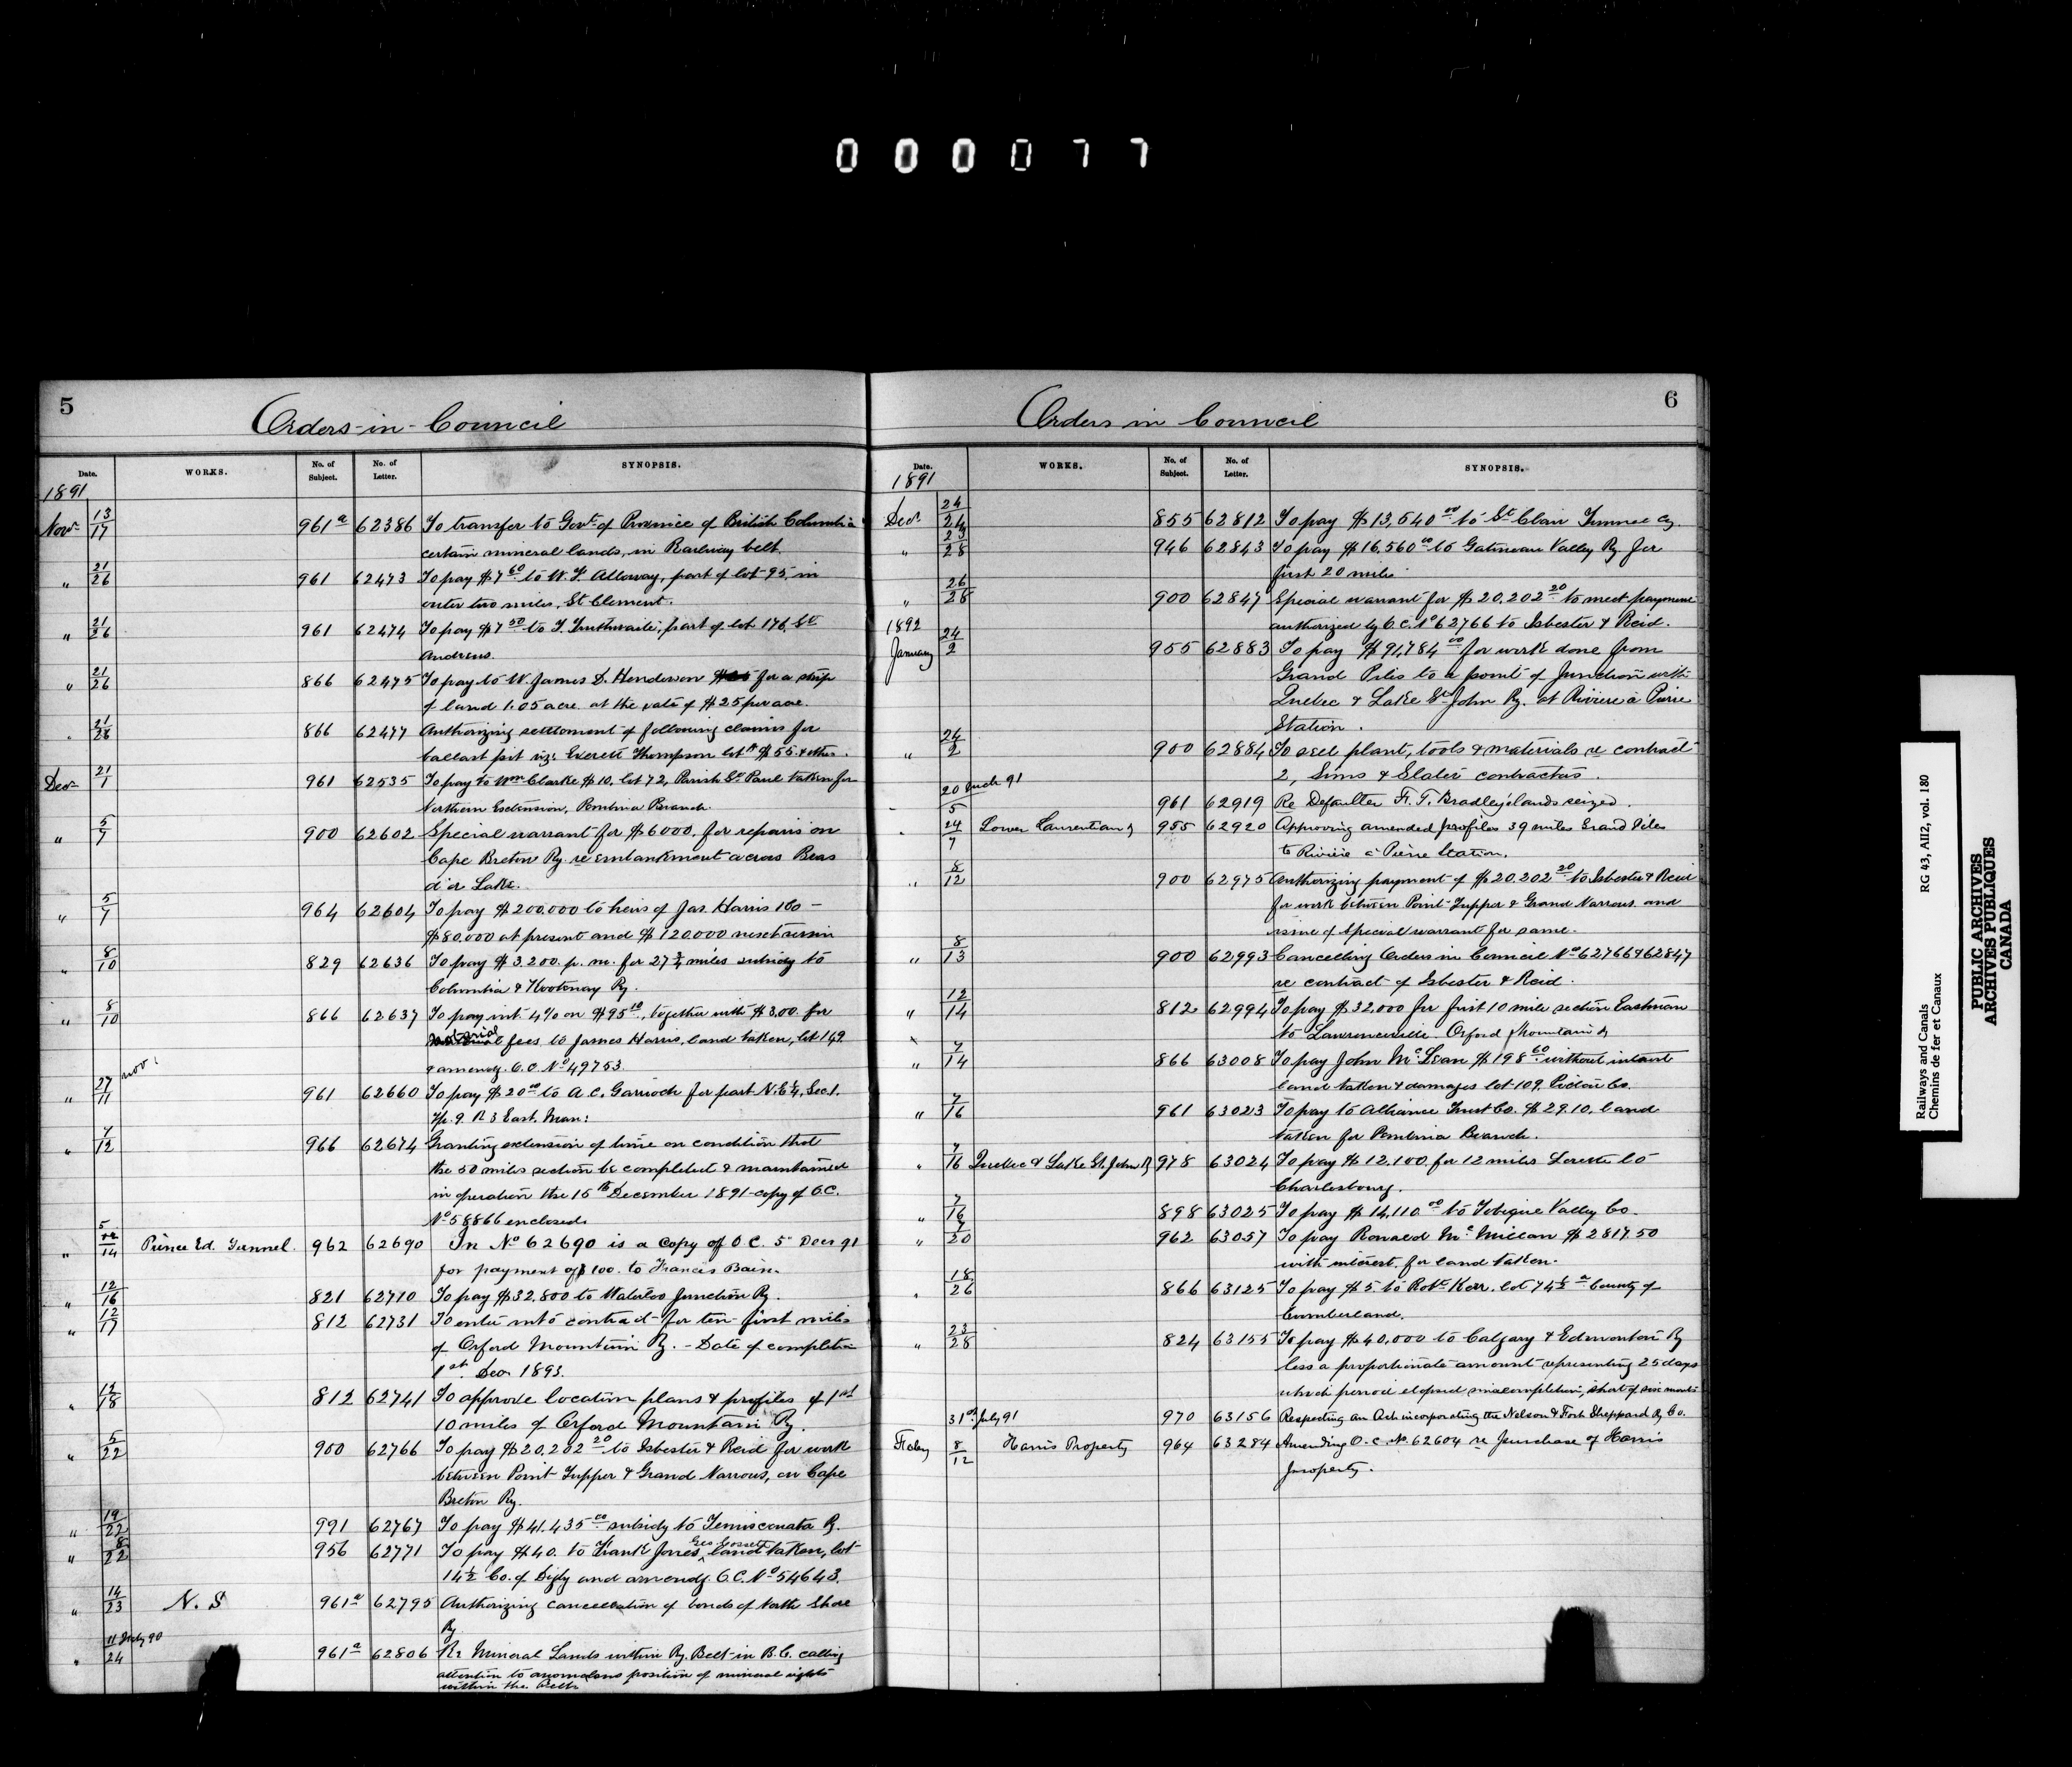 0 0 0 0 7 7
5
Orders-in-Council
Date.
WORKS.
No. of Subject.
No. of Letter.
SYNOPSIS.
1891
Novr 13/17 961a 62386 To transfer to Govt of Province of British Columbia
certain mineral lands, in Railway belt.
" 21/26 961 62473 To pay $7.60 to W. F. Alloway, part of lot 95, in
outer two miles, St Clement.
" 21/26 961 62474 To pay $7.50 to T. Truthwaite, part of lot 176, St
Andrews.
" 21/26 866 62475 To pay to W. James D. Henderson for a strip
of land 1.05 acre at the rate of $25 per acre.
" 21/26 866 62477 Authorizing settlement of following claims for
ballast pit viz: Everett Thompson lot A $55 & other.
Decr 21/1 961 62535 To pay to Wm Clarke $10, lot 72, Parish St Paul taken for
Northern Extension, Pembina Branch.
" 5/7 900 62602 Special warrant for $6000. for repairs on
Cape Breton Ry. re embankment across Bras
d'or Lake.
" 5/7 964 62604 To pay $200,000 to heirs of Jas. Harris & Co -
$80,000 at present and $120,000 next session
" 8/10 829 62636 To pay $3,200. p. m. for 27 3/4 miles subsidy to
Columbia & Kootenay Ry.
" 8/10 866 62637 To pay int. 4% on $95.10, together with $3.00. for
notarial fees to James Harris, land taken, lot 149
& amendg. O.C. No 49753.
" 27 Nov:/11 961 62660 To pay $20.00 to A. C. Garrioch for part N.E 1/4, Sec 1.
Tp. 9. R 3 East. Man:
" 7/12 966 62674 Granting extension of time on condition that
the 50 miles section be completed & maintained
in operation the 15th December 1891 - copy of O.C.
No 58866 enclosed.
" 5/14 Prince Ed. Tunnel. 962 62690 In No 62690 is a copy of O.C. 5" Decr 91
for payment of $100. to Francis Bain.
" 12/16 821 62710 To pay $32,800 to Waterloo Junction Ry.
" 12/17 812 62731 To enter into contract for ten first miles
of Orford Mountain Ry. - Date of completion
1st. Decr 1893.
" 12/18 812 62741 To approve location plans & profiles of 1st
10 miles of Orford Mountain Ry.
" 5/22 900 62766 To pay $20,202.20 to Isbester & Reid for work
between Point Tupper & Grand Narrows, on Cape
Breton Ry.
" 19/22 991 62767 To pay $41,435.00 subsidy to Temiscouata Ry.
" 8/22 956 62771 To pay $40. to Frank Jones, land taken, lot
14 1/2 Co. of Digby and amendg. O.C. No 54643.
" 14/23 N. S 961a 62795 Authorizing cancellation of bonds of North Shore
Ry.
" 11 July 90/24 961a 62806 Re Mineral Lands within Ry. Belt in B.C. calling
attention to anomalous position of mineral rights
within the Belt.
6
Orders in Council
Date.
WORKS.
No. of Subject.
No. of Letter.
SYNOPSIS.
1891
Decr. 24/24 855 62812 To pay $13,640.00 to St Clair Tunnel Cy.
" 23/28 946 62843 To pay $16,560.00 to Gatineau Valley Ry for
first 20 miles.
" 26/28 900 62847 Special warrant for $20,202.20 to meet payment
authorized by O.C. No 62766 to Isbester & Reid.
1892
January 24/2 955 62883 To pay $91,784.00 for work done from
Grand Piles to a point of Junction with
Quebec & Lake St John Ry. at Rivière à Pierre
Station.
" 24/2 900 62884 To sell plant, tools & materials re contract
2, Sims & Slater contractors.
" 20 Mch 91/5 961 62919 Re Defaulter F. T. Bradley's lands seized.
" 24/7 Lower Laurentian Ry 955 62920 Approving amended profiles 39 miles Grand Piles
to Rivière à Pierre Station.
" 8/12 900 62975 Authorizing payment of $20,202.20 to Isbester & Reid
for work between Point Tupper & Grand Narrows and
issue of special warrant for same.
" 8/13 900 62993 Cancelling Orders in Council Nos 62766 & 62847
re contract of Isbester & Reid.
" 12/14 812 62994 To pay $32,000 for first 10 mile section Eastman
to Lawrenceville. Orford Mountain Ry
" 7/14 866 63008 To pay John McLean $198.60 without interest
land taken & damages lot 109, Pictou Co.
" 7/16 961 63023 To pay to Alliance Trust Co. $29.10. land
taken for Pembina Branch.
" 7/16 Quebec & Lake St. John Ry 978 63024 To pay $12,100 for 12 miles Lorette to
Charlesbourg.
" 7/16 898 63025 To pay $14,110.00 to Tobique Valley Co.
" 7/20 962 63057 To pay Ronald McMillan $2817.50
with interest. for land taken.
" 18/26 866 63125 To pay $5. to Robt Kerr. lot 74 1/2 a County of
Cumberland.
" 23/28 824 63155 To pay $40,000 to Calgary & Edmonton Ry
less a proportionate amount representing 25 days
which period elapsed since completion, short of six months
31st July 91 970 63156 Respecting an Act incorporating the Nelson & Fort Sheppard Ry Co.
Feby 8/12 Harris Property 964 63284 Amending O.C. No. 62604 re purchase of Harris
property.
Railways and Canals
Chemins de fer et Canaux
RG 43, AII2, vol. 180
PUBLIC ARCHIVES
ARCHIVES PUBLIQUES
CANADA